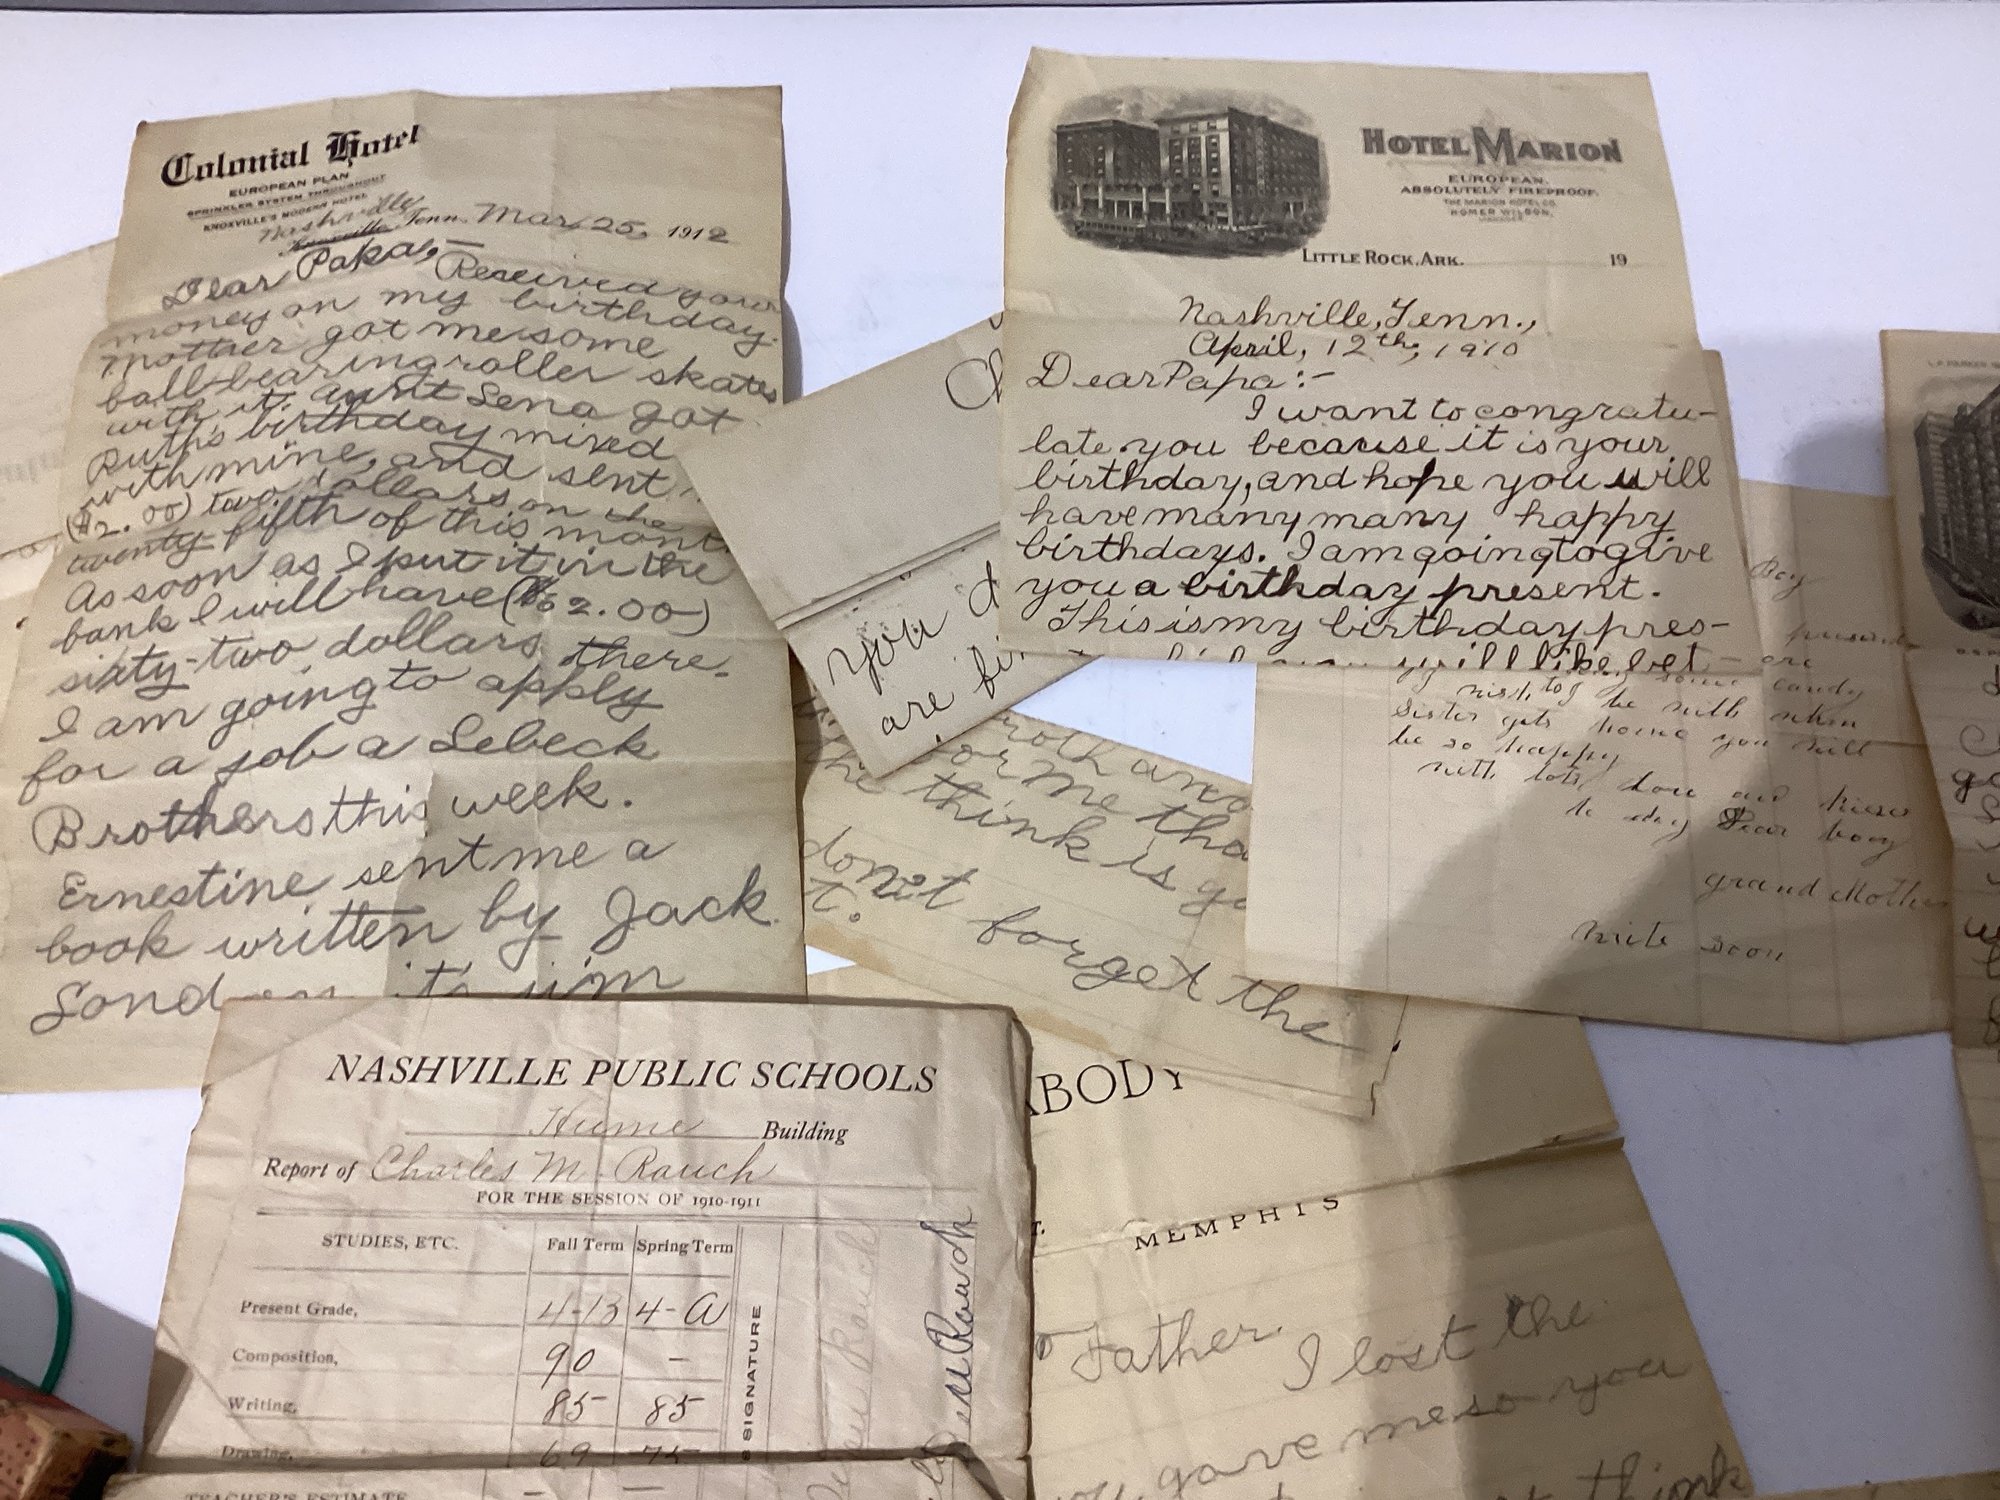 Colonial Hotel
EUROPEAN PLAN
SPRINKLER SYSTEM THROUGHOUT
KNOXVILLE'S MODERN HOTEL
Nashville
Knoxville, Tenn. Mar, 25, 1912
Dear Papa,—
Received your
money on my birthday.
Mother got me some
ball-bearing roller skates
with it. Aunt Lena got
Ruth's birthday mixed
with mine, and sent
($2.00) two dollars on the
twenty-fifth of this mont
As soon as I put it in the
bank I will have ($62.00)
sixty-two dollars there.
I am going to apply
for a job a Lebeck
Brothers this week.
Ernestine sent me a
book written by Jack
HOTEL MARION
EUROPEAN.
ABSOLUTELY FIREPROOF.
THE MARION HOTEL CO.
HOMER WILSON,
MANAGER.
LITTLE ROCK, ARK. 19
Nashville, Tenn.,
April, 12th, 1910
Dear Papa:-
I want to congratu-
late you because it is your
birthday, and hope you will
have many many happy
birthdays. I am going to give
you a birthday present.
This is my birthday pres-
will like bet-
you
are
for me tha
the think is
donit forget the
t.
Boy
are
some candy
to be with when
Sister gets home you will
be so happy
with lots love and kisses
to my Dear boy
grand Mother
write soon
NASHVILLE PUBLIC SCHOOLS
Hume Building
Report of Charles M. Rauch
FOR THE SESSION OF 1910-1911
STUDIES, ETC. Fall Term Spring Term
Present Grade, 4-B 4-A
Composition, 90 –
Writing, 85 85
Drawing, 69 75
TEACHER'S ESTIMATE – –
SIGNATURE
Rauch
Rauch
ABODY
T. MEMPHIS
Father I lost the
you gave me so you
think